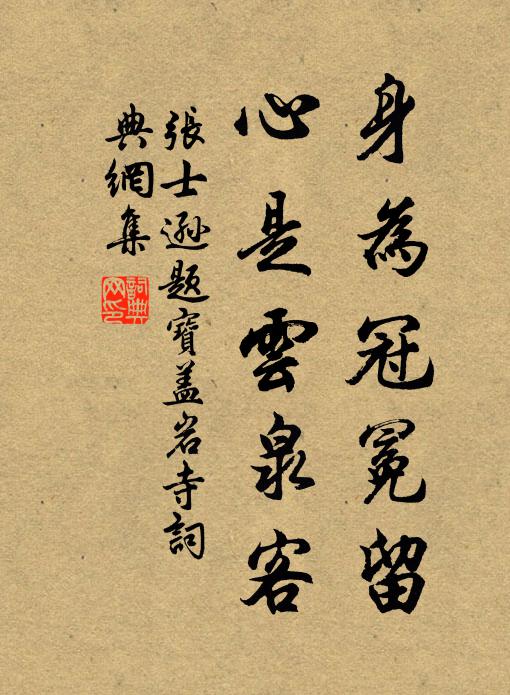 身為冠冕留
心是雲泉客
張士遜題寶蓋岩寺詞
典網集
詞典網印